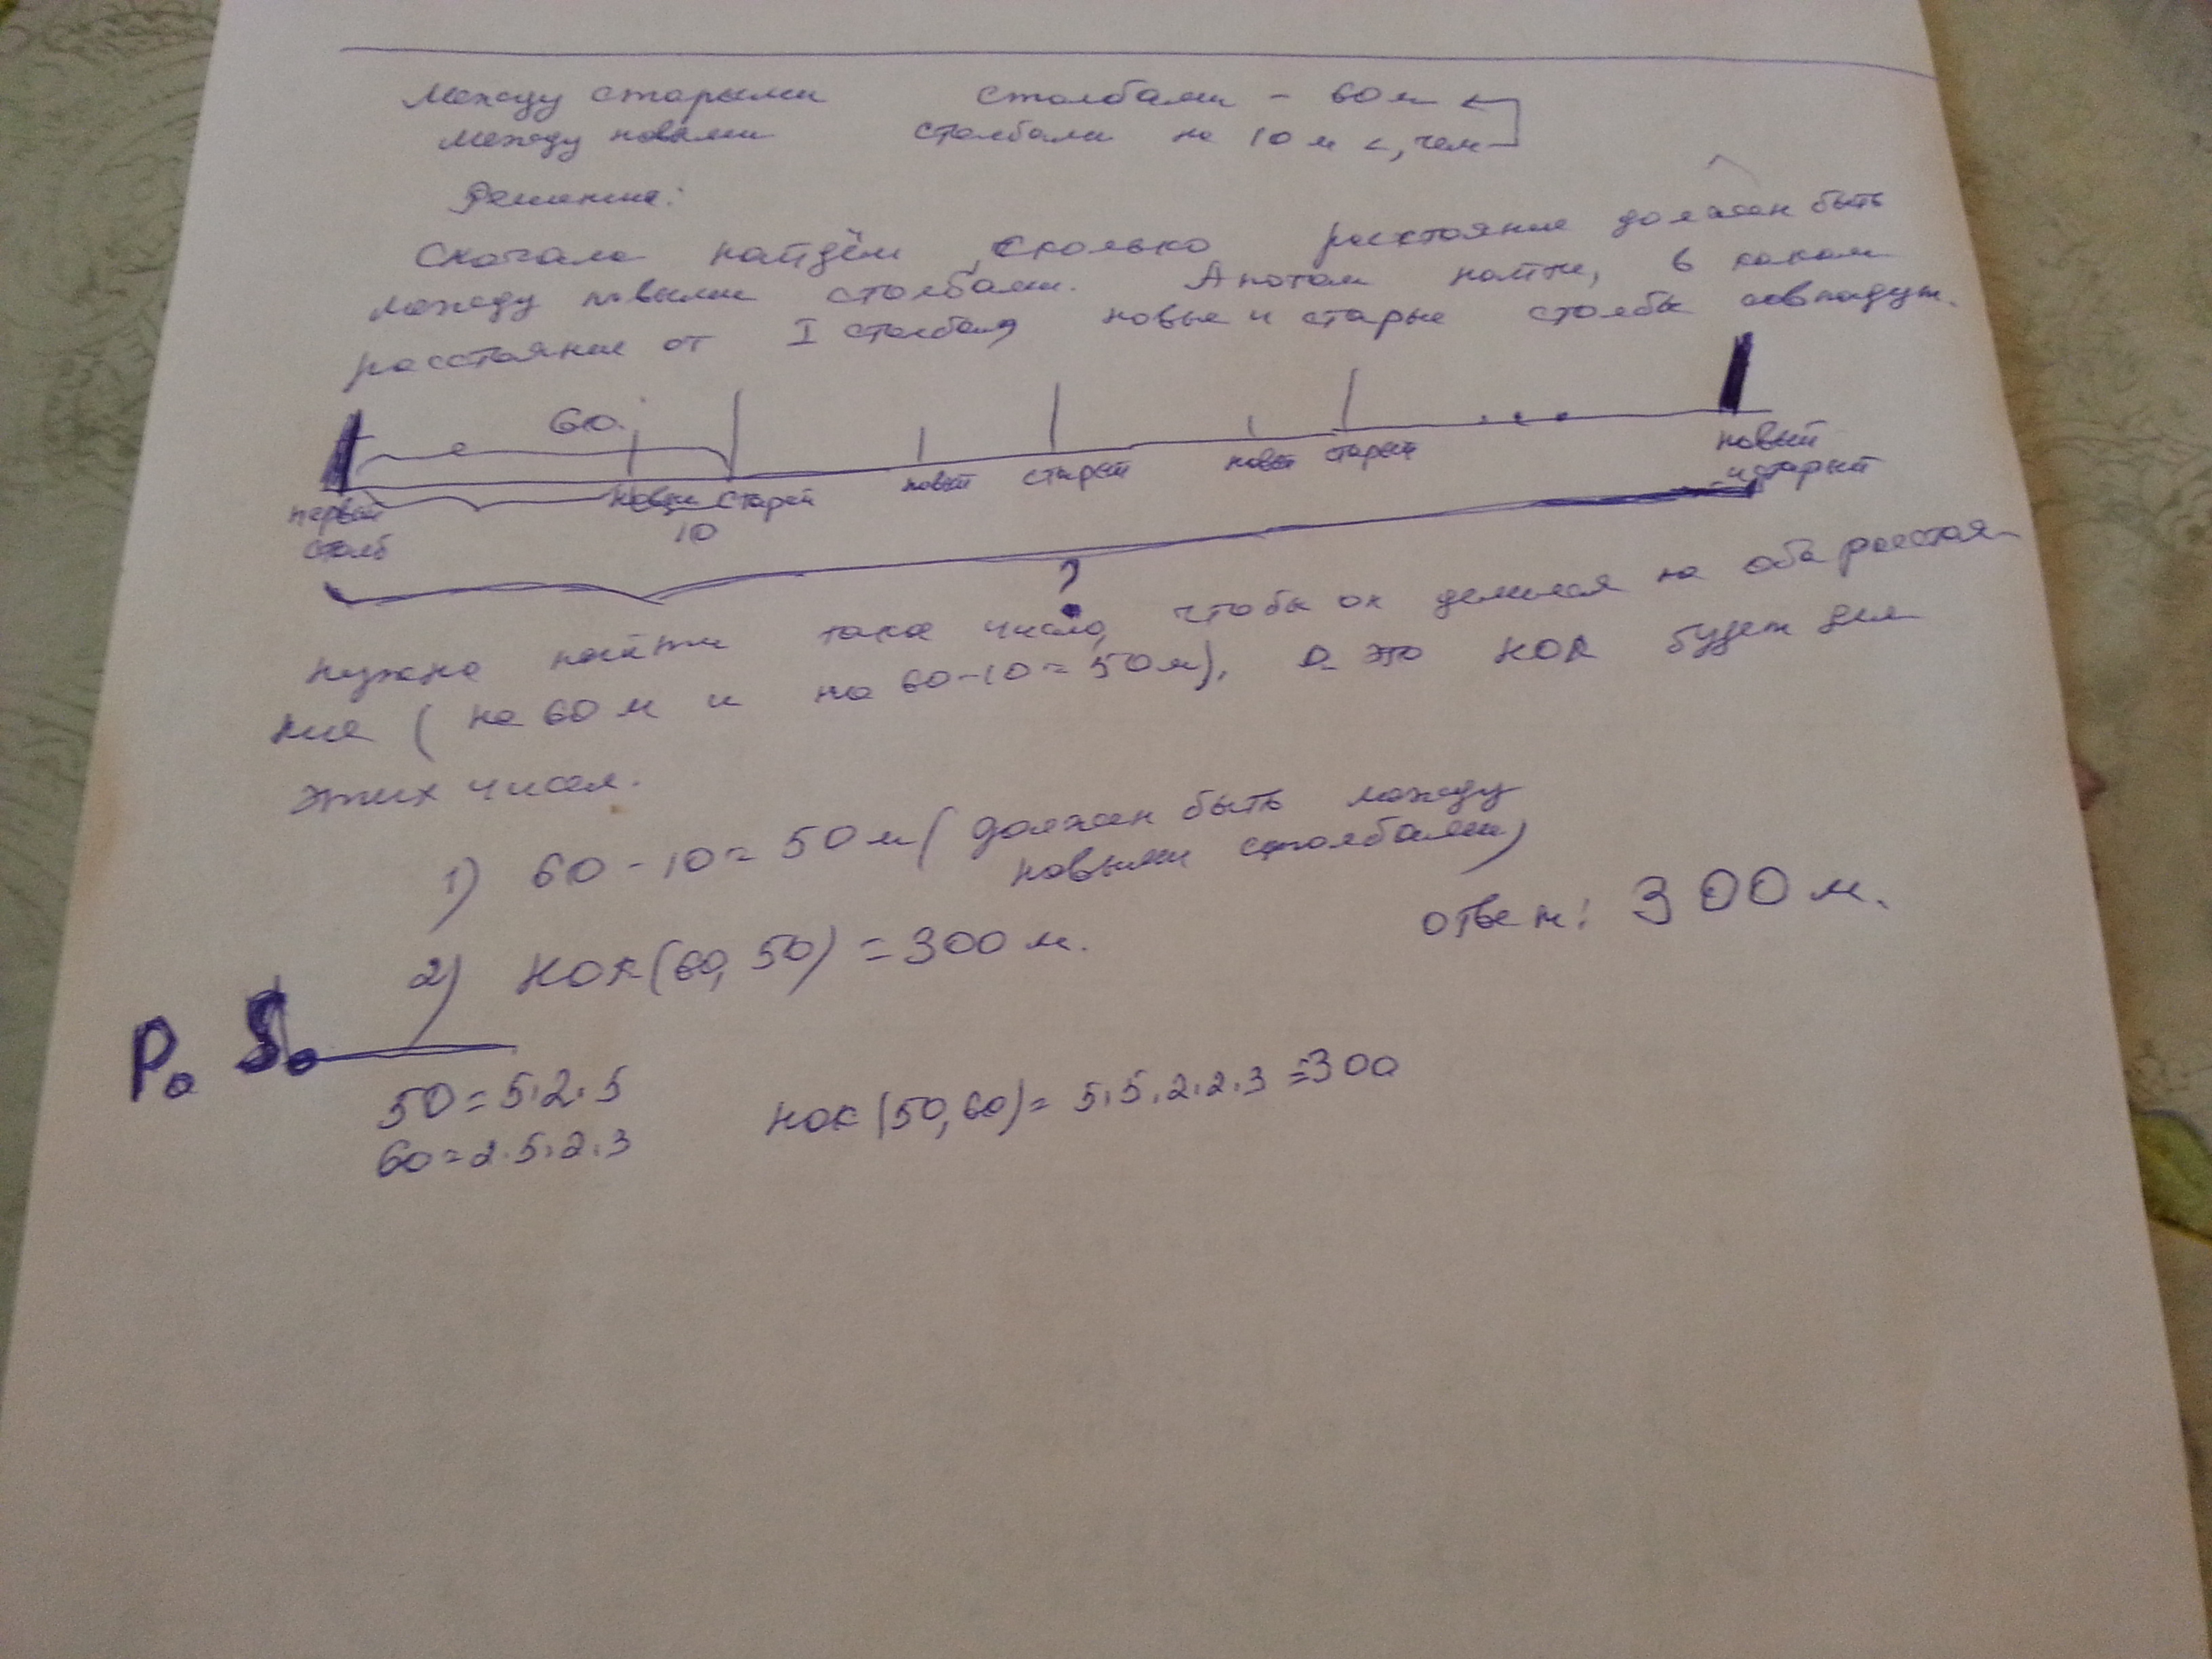 Между старыми столбами – 60м
между новыми столбами на 10 м <, чем
Решение:
Сначала найдём, сколько расстояние должен быть
между новыми столбами. А потом найти, в каком
расстояние от I столба новые и старые столбы совпадут.
60
первый столб
новый
старый
новый
старый
новый
старый
новый и старый
10
?
Нужно найти такое число, чтобы он делился на оба расстоя-
ние (на 60 м и на 60-10=50м), а это НОК будет для
этих чисел.
1) 60-10=50м (должен быть между
новыми столбами)
2) НОК(60, 50) = 300 м.
ответ: 300 м.
P.S.
50=5.2.5
60=2.5.2.3
НОК(50,60)= 5.5.2.2.3 =300